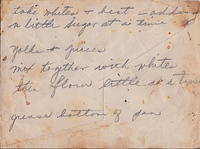 take whites & beat - adding
a little sugar at a time
Yolks & juices
mix together with whites
then flour little at a time
grease bottom of pan